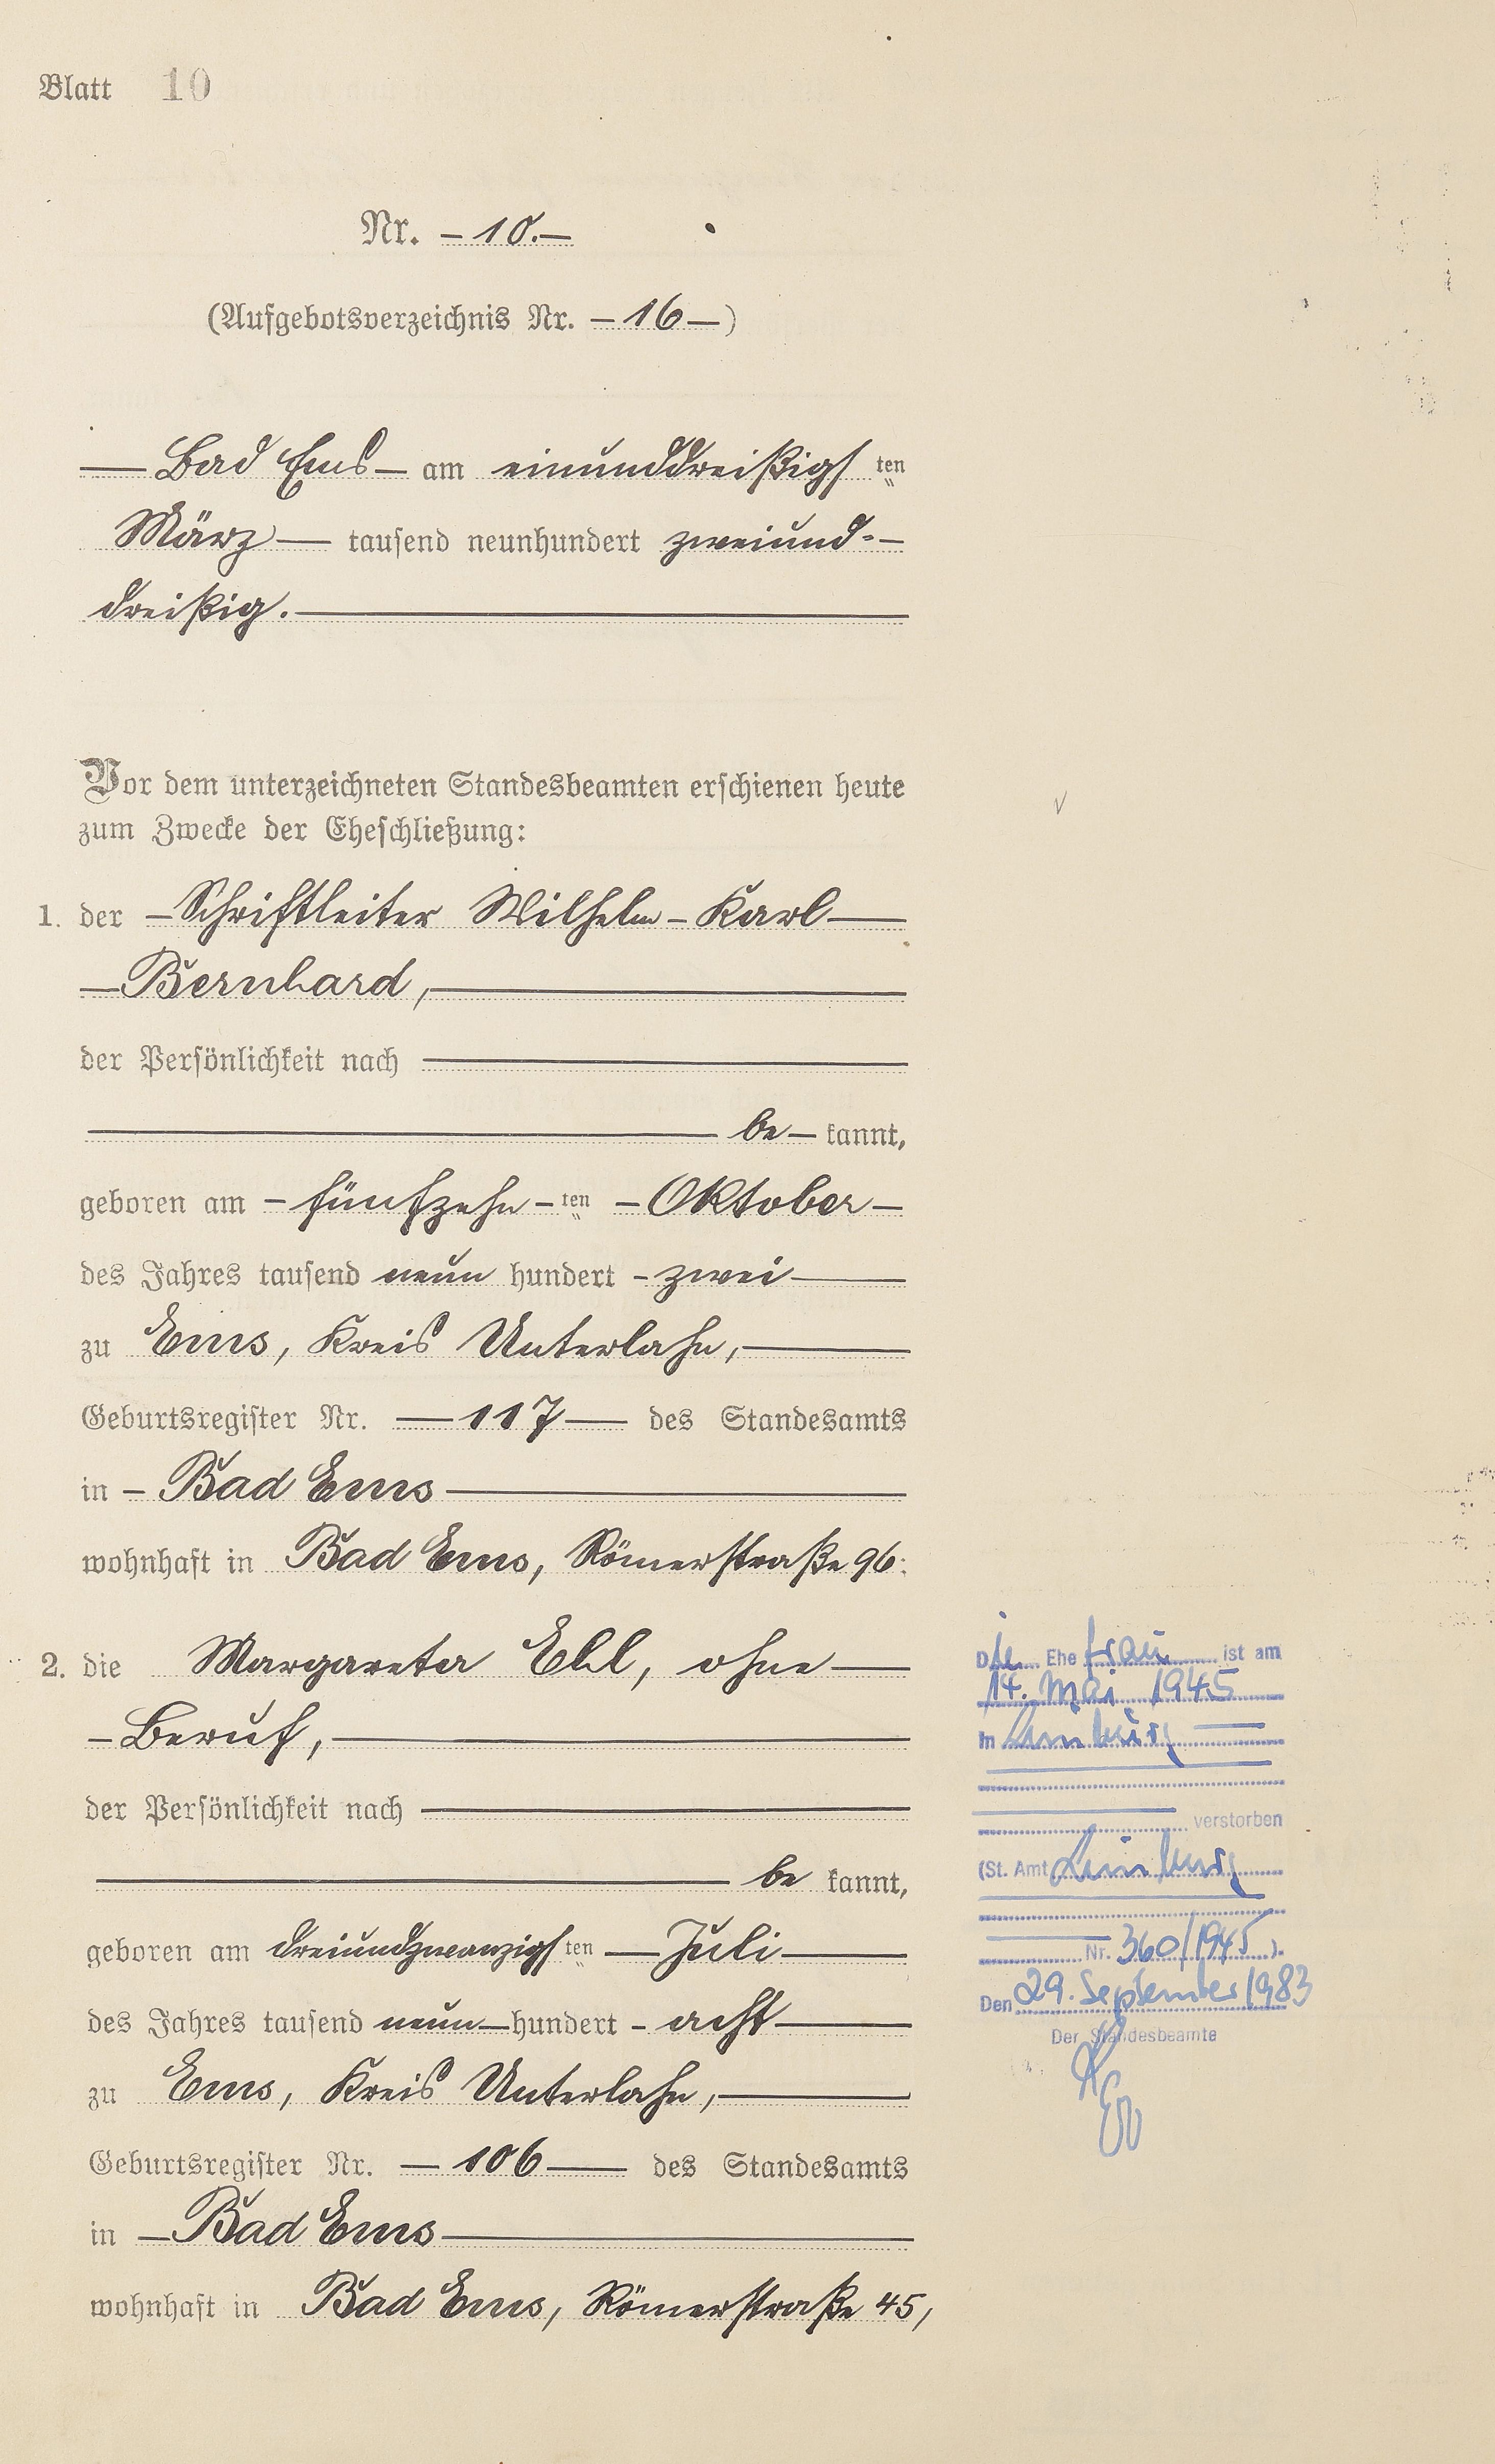 Blatt 10
Nr. – 10. –
(Aufgebotsverzeichnis Nr. – 16 –)
— Bad Ems – am einunddreißigs ten
März — tausend neunhundert zweiund- –
dreißig. —
Vor dem unterzeichneten Standesbeamten erschienen heute
zum Zwecke der Eheschließung:
1. der – Schriftleiter Wilhelm – Karl —
— Bernhard, —
der Persönlichkeit nach —
— be – kannt,
geboren am – fünfzehn – ten – Oktober –
des Jahres tausend neun hundert – zwei —
zu Ems, Kreis Unterlahn, —
Geburtsregister Nr. — 117 — des Standesamts
in – Bad Ems —
wohnhaft in Bad Ems, Römerstraße 96.
2. die Margareta Ebl, ohne —
– Beruf, —
der Persönlichkeit nach —
— be kannt,
geboren am dreiundzwanzigs ten — Juli —
des Jahres tausend neun — hundert – acht —
zu Ems, Kreis Unterlahn, —
Geburtsregister Nr. — 106 — des Standesamts
in — Bad Ems —
wohnhaft in Bad Ems, Römerstraße 45,
Die Ehefrau ist am
14. Mai 1945
in Limburg —
— verstorben
(St. Amt Limburg
— Nr. 360/1945).
Den 29. September 1983
Der Standesbeamte